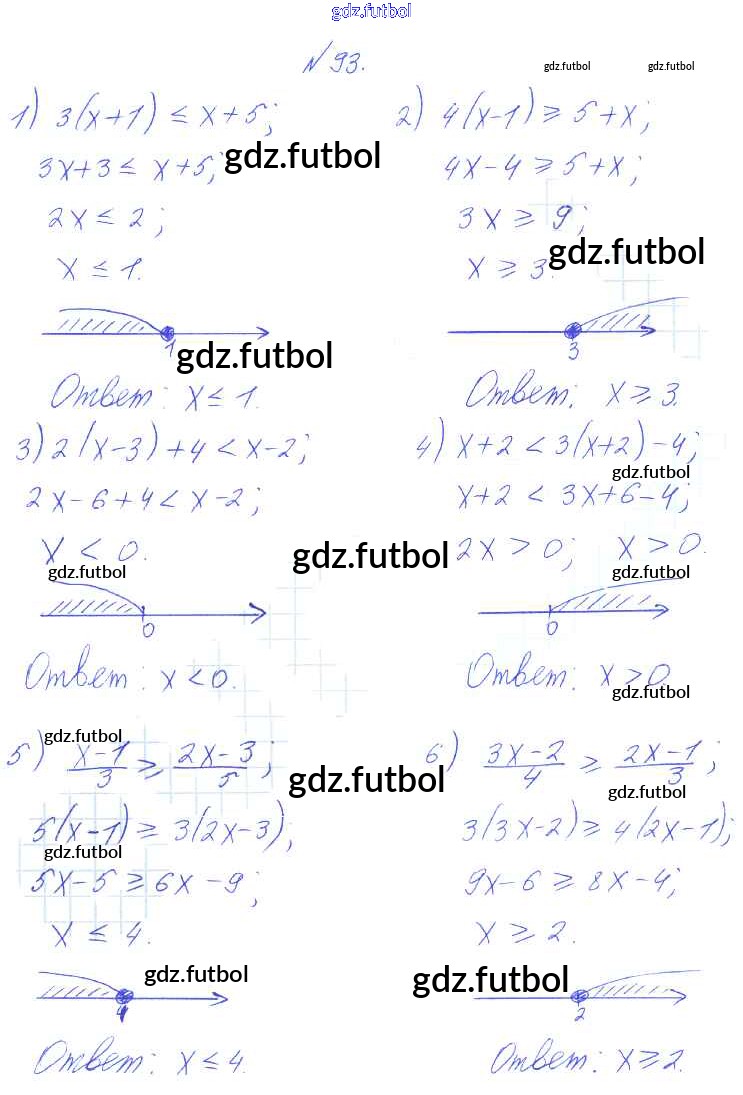 gdz.futbol
№ 93.
gdz.futbol gdz.futbol
1) 3(x+1) ≤ x+5;
3x+3 ≤ x+5;
gdz.futbol
2x ≤ 2;
x ≤ 1.
1
gdz.futbol
Ответ: x ≤ 1.
2) 4(x-1) ≥ 5+x;
4x-4 ≥ 5+x;
3x ≥ 9;
gdz.futbol
x ≥ 3.
3
Ответ: x ≥ 3.
3) 2(x-3)+4 < x-2;
2x-6+4 < x-2;
x < 0.
gdz.futbol
gdz.futbol
0
Ответ: x < 0.
4) x+2 < 3(x+2)-4;
gdz.futbol
x+2 < 3x+6-4;
2x > 0; x > 0.
gdz.futbol
0
Ответ: x > 0.
gdz.futbol
gdz.futbol
5) x-1/3 ≥ 2x-3/5;
gdz.futbol
5(x-1) ≥ 3(2x-3);
gdz.futbol
5x-5 ≥ 6x-9;
x ≤ 4.
gdz.futbol
4
Ответ: x ≤ 4.
6) 3x-2/4 ≥ 2x-1/3;
gdz.futbol
3(3x-2) ≥ 4(2x-1);
9x-6 ≥ 8x-4;
x ≥ 2.
gdz.futbol
2
Ответ: x ≥ 2.